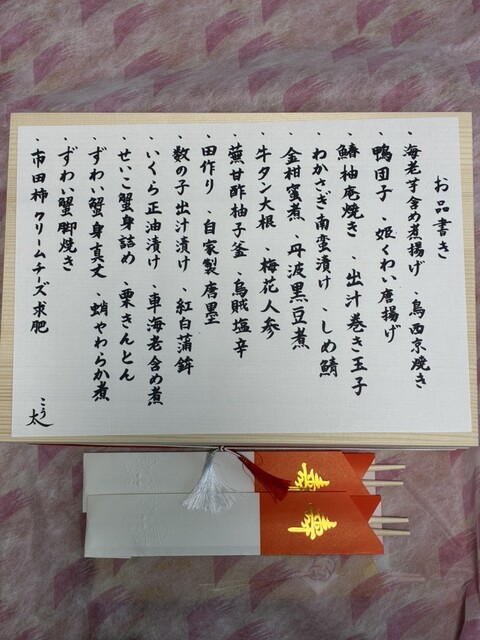 お品書き
・海老芋含め煮揚げ ・烏西京焼き
・鴨団子 ・姫くわい唐揚げ
・鰆柚庵焼き ・出汁巻き玉子
・わかさぎ南蛮漬け ・しめ鯖
・金柑蜜煮 ・丹波黒豆煮
・牛タン大根 ・梅花人参
・蕪甘酢柚子釜 ・烏賊塩辛
・田作り ・自家製唐墨
・数の子出汁漬け ・紅白蒲鉾
・いくら正油漬け ・車海老含め煮
・せいこ蟹身詰め ・栗きんとん
・ずわい蟹身真丈 ・蛸やわらか煮
・ずわい蟹脚焼き
・市田柿クリームチーズ求肥
こう太
寿
寿